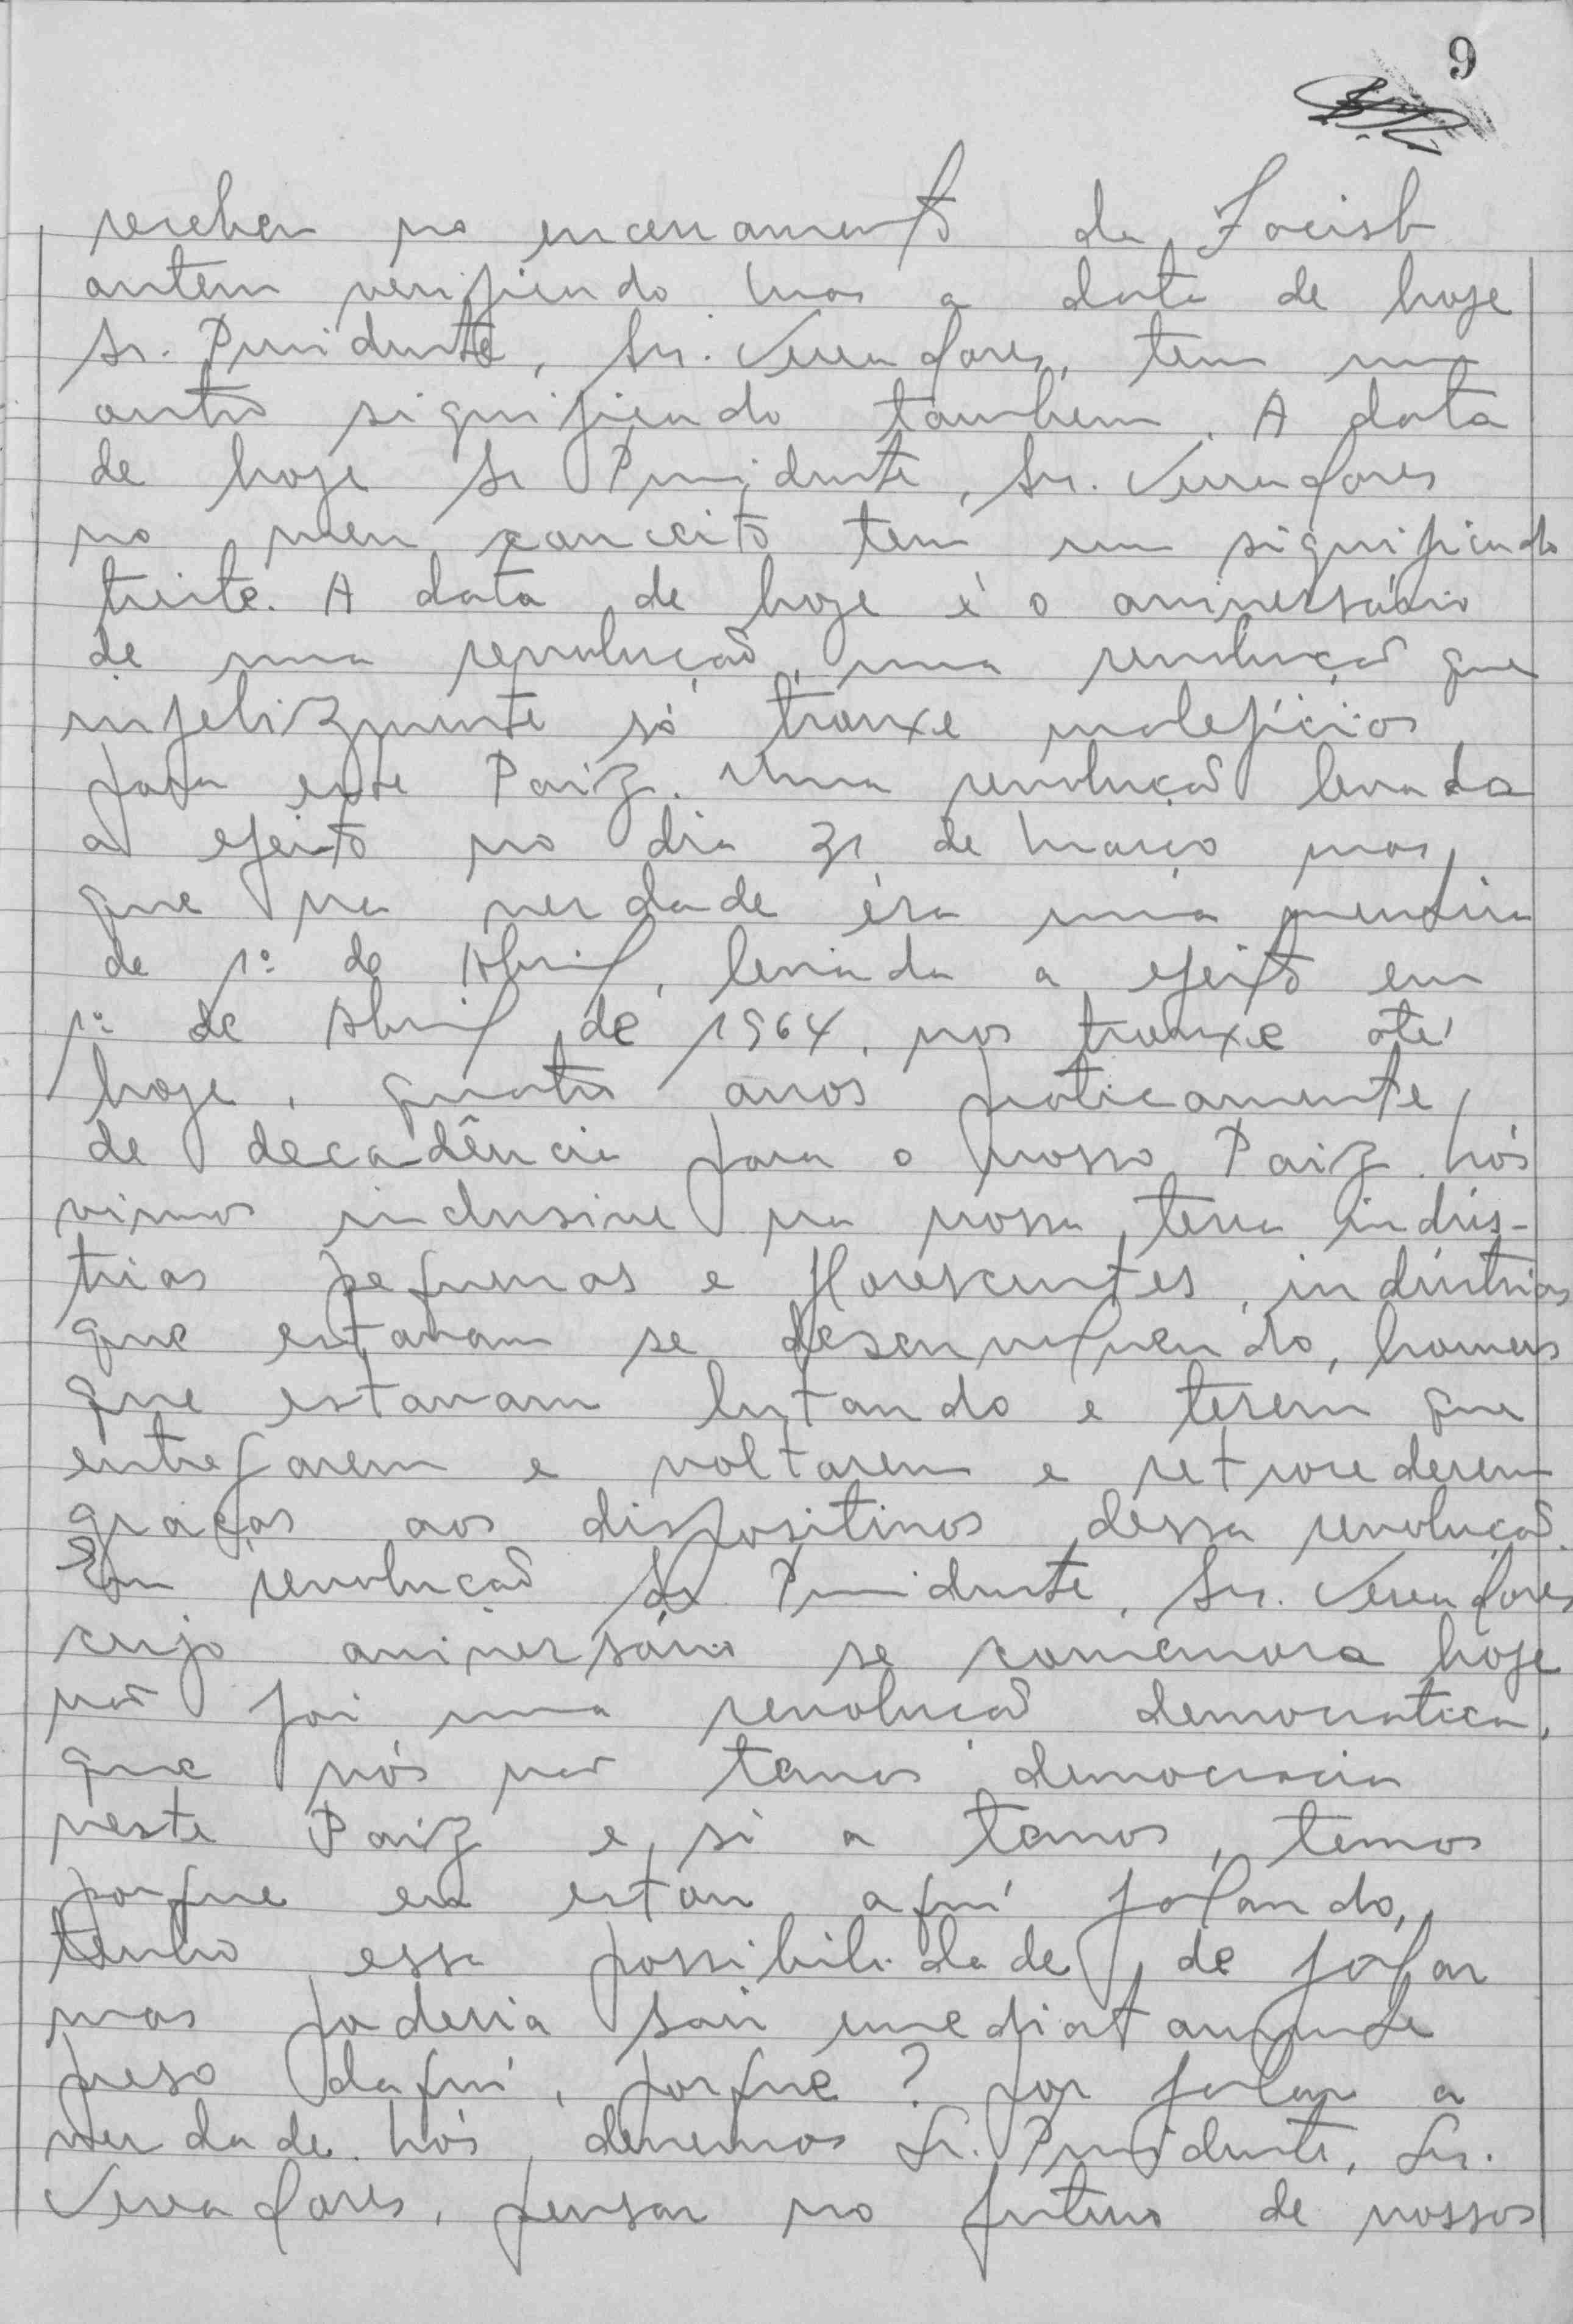 9
receber no encerramento da Facisb
ontem verificando mas a data de hoje
Sr. Presidente, Srs. Vereadores, tem um
outro significado tambem. A data
de hoje Sr Presidente, Srs. Vereadores
no meu conceito tem um significado
triste. A data de hoje é o aniversário
de uma revolução, uma revolução que
infelizmente só trouxe maleficios
para este Paiz. Uma revolução levada
a efeito no dia 31 de março mas,
que na verdade éra uma mentira
de 1º de Abril, levada a efeito em
1º de Abril de 1964, nos trouxe até
hoje, quatro anos praticamente,
de decadência para o nosso Paiz. Nós
vimos inclusive na nossa terra indús-
trias pequenas e florescentes, indústrias
que estavam se desenvolvendo, homens
que estavam lutando e terem que
entregarem e voltarem e retrocederem
graças aos dispositivos dessa revolução.
Essa revolução Sr Presidente, Srs. Vereadores
cujo aniversário se comemora hoje
não foi uma revolução democratica,
que nós não temos democracia
neste Paiz e, si a temos, temos
porque eu estou aqui falando,
tenho essa possibilidade, de falar
mas poderia sair imediatamente
preso daqui, porque? por falar a
verdade. Nós devemos Sr. Presidente, Srs.
Vereadores, pensar no futuro de nossos